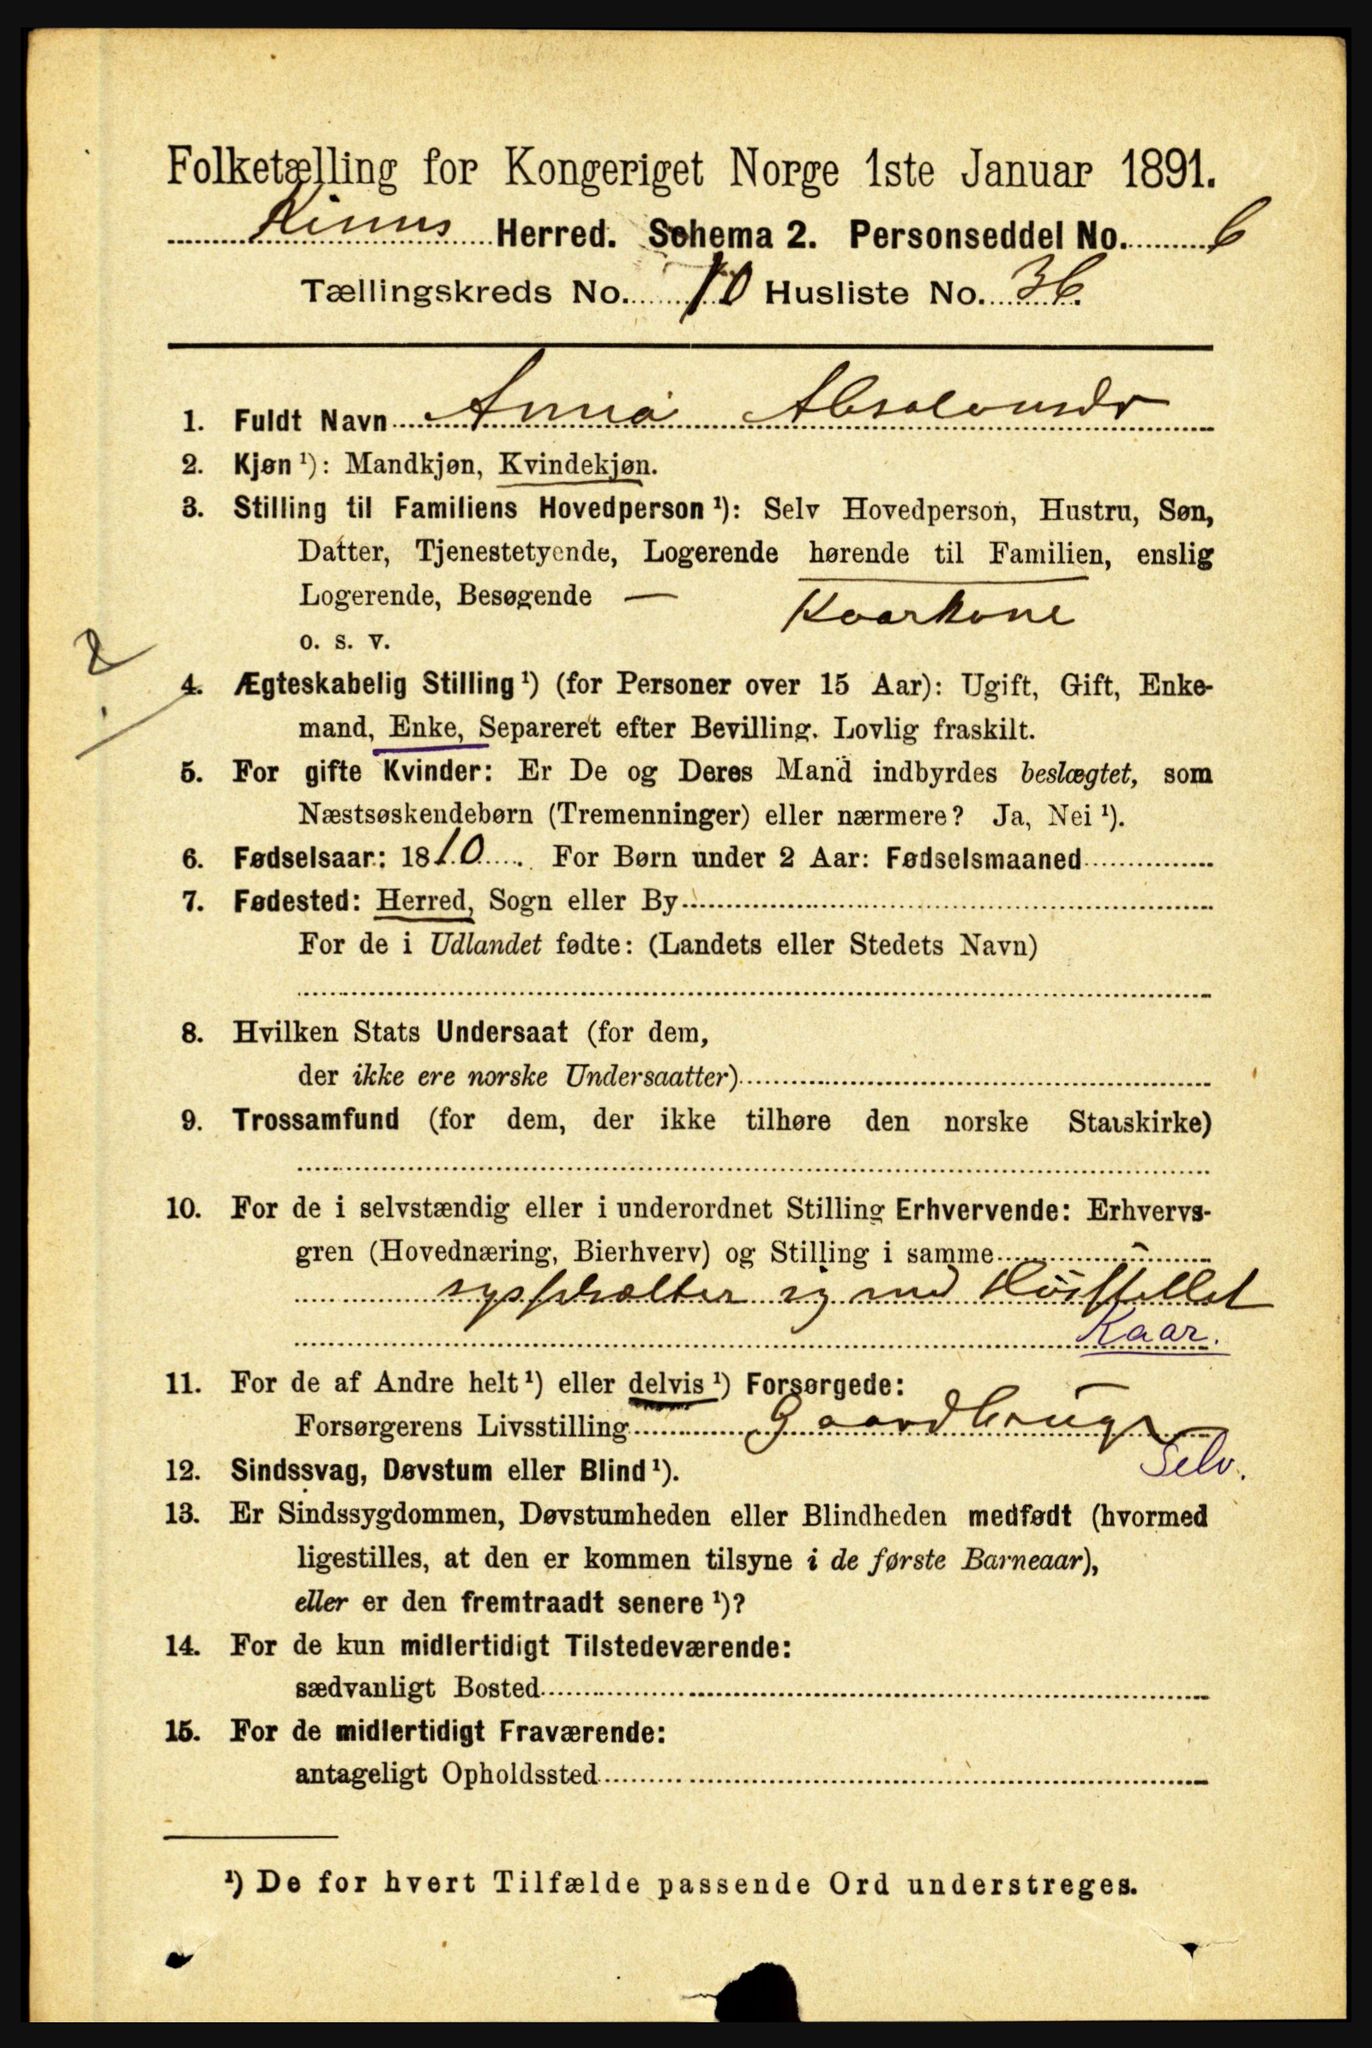 Folketælling for Kongeriget Norge 1ste Januar 1891.
Kinns Herred. Schema 2. Personseddel No. 6
Tællingskreds No. 10 Husliste No. 36.
1. Fuldt Navn Anna Absalonsdr
2. Kjøn ¹): Mandkjøn, Kvindekjøn.
3. Stilling til Familiens Hovedperson ¹): Selv Hovedperson, Hustru, Søn,
Datter, Tjenestetyende, Logerende hørende til Familien, enslig
Logerende, Besøgende — Kaarkone
o. s. v.
2
4. Ægteskabelig Stilling ¹) (for Personer over 15 Aar): Ugift, Gift, Enke-
mand, Enke, Separeret efter Bevilling. Lovlig fraskilt.
5. For gifte Kvinder: Er De og Deres Mand indbyrdes beslægtet, som
Næstsøskendebørn (Tremenninger) eller nærmere? Ja, Nei ¹).
6. Fødselsaar: 1810. For Børn under 2 Aar: Fødselsmaaned
7. Fødested: Herred, Sogn eller By
For de i Udlandet fødte: (Landets eller Stedets Navn)
8. Hvilken Stats Undersaat (for dem,
der ikke ere norske Undersaatter)
9. Trossamfund (for dem, der ikke tilhøre den norske Statskirke)
10. For de i selvstændig eller i underordnet Stilling Erhvervende: Erhvervs-
gren (Hovednæring, Bierhverv) og Stilling i samme
sysselsætter sig med Husstellet
Kaar.
11. For de af Andre helt ¹) eller delvis ¹) Forsørgede:
Forsørgerens Livsstilling Gaardbruger
Selv.
12. Sindssvag, Døvstum eller Blind ¹).
13. Er Sindssygdommen, Døvstumheden eller Blindheden medfødt (hvormed
ligestilles, at den er kommen tilsyne i de første Barneaar),
eller er den fremtraadt senere ¹)?
14. For de kun midlertidigt Tilstedeværende:
sædvanligt Bosted
15. For de midlertidigt Fraværende:
antageligt Opholdssted
¹) De for hvert Tilfælde passende Ord understreges.